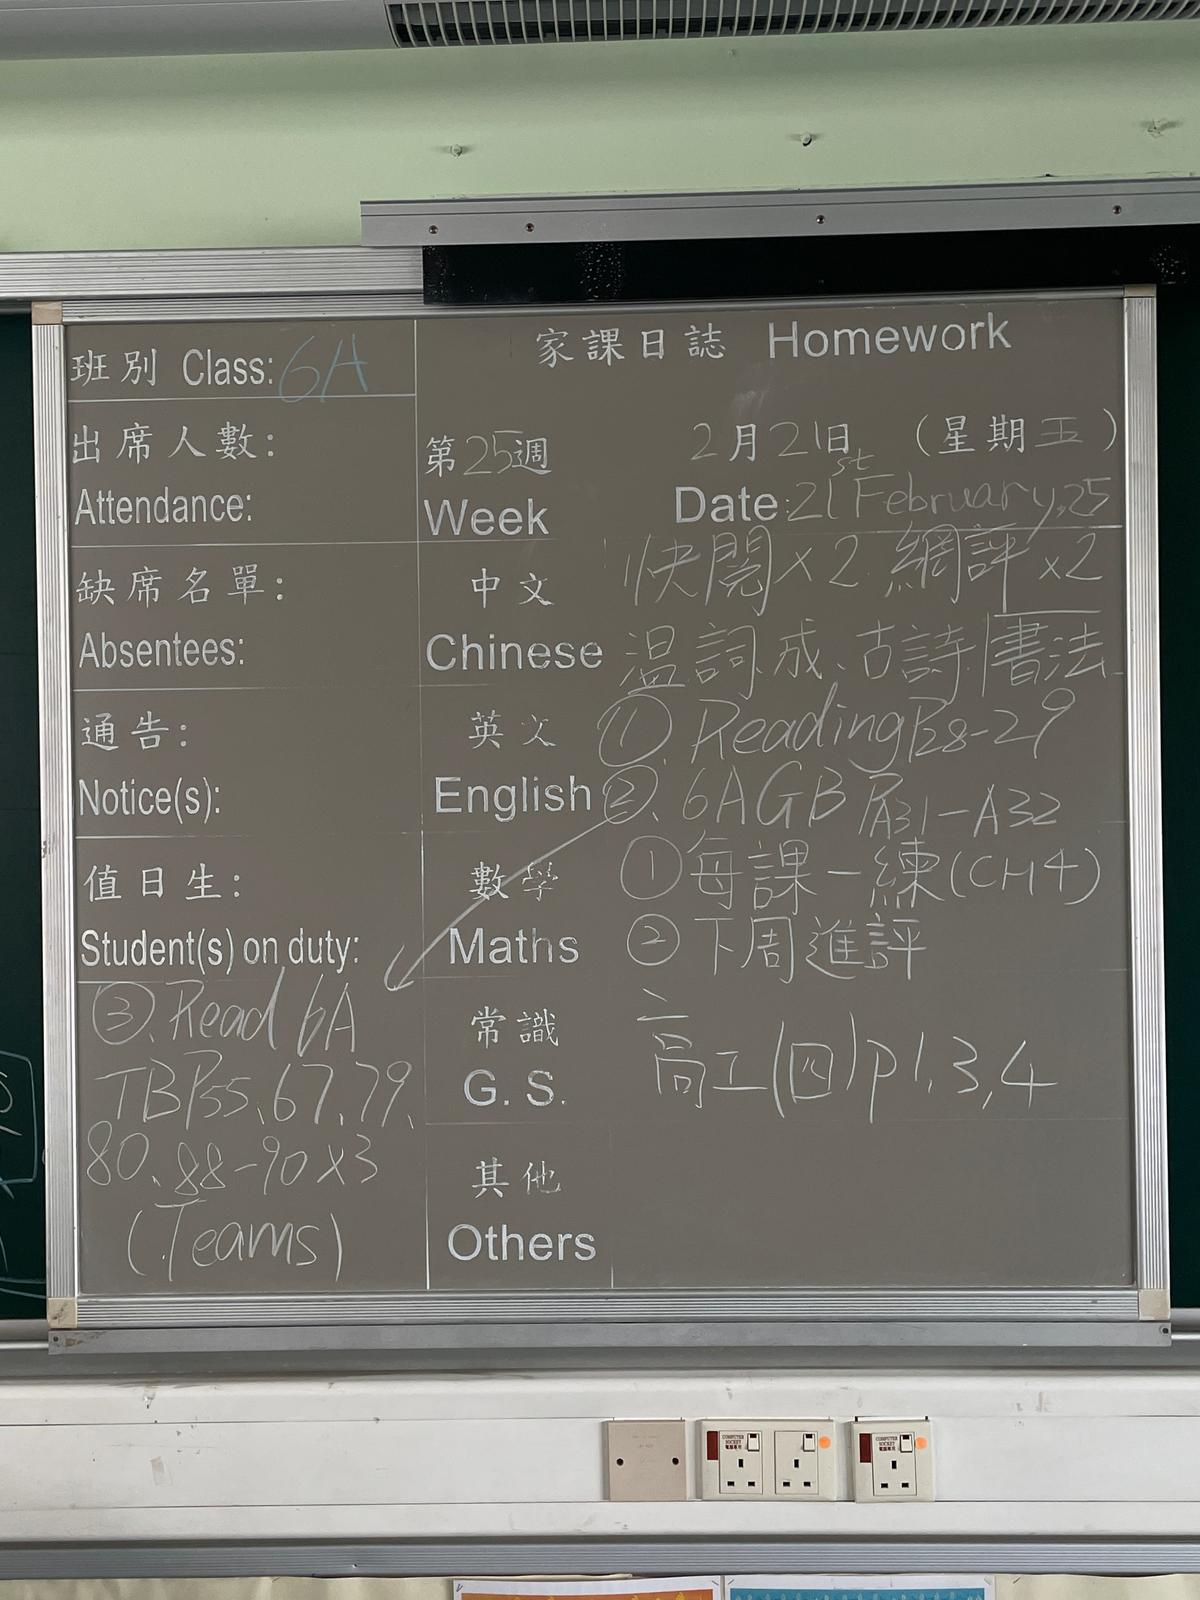 家課日誌 Homework
班別 Class: 6A
出席人數:
Attendance:
第25週
Week
2月21日 (星期五)
Date: 21st February, 25
缺席名單:
Absentees:
通告:
Notice(s):
值日生:
Student(s) on duty:
③. Read 6A
TB P55、67、79、
80、88-90 x3
(Teams)
中文
Chinese
快閱 x 2 網評 x2
温詞、成、古詩 書法
英文
English
①. Reading P28-29
②. 6A GB PA31-A32
數學
Maths
①每課一練(CH4)
②下周進評
常識
G.S.
高工(四)P1,3,4
其他
Others
COMPUTER
SOCKET
電腦專用
COMPUTER
SOCKET
電腦專用